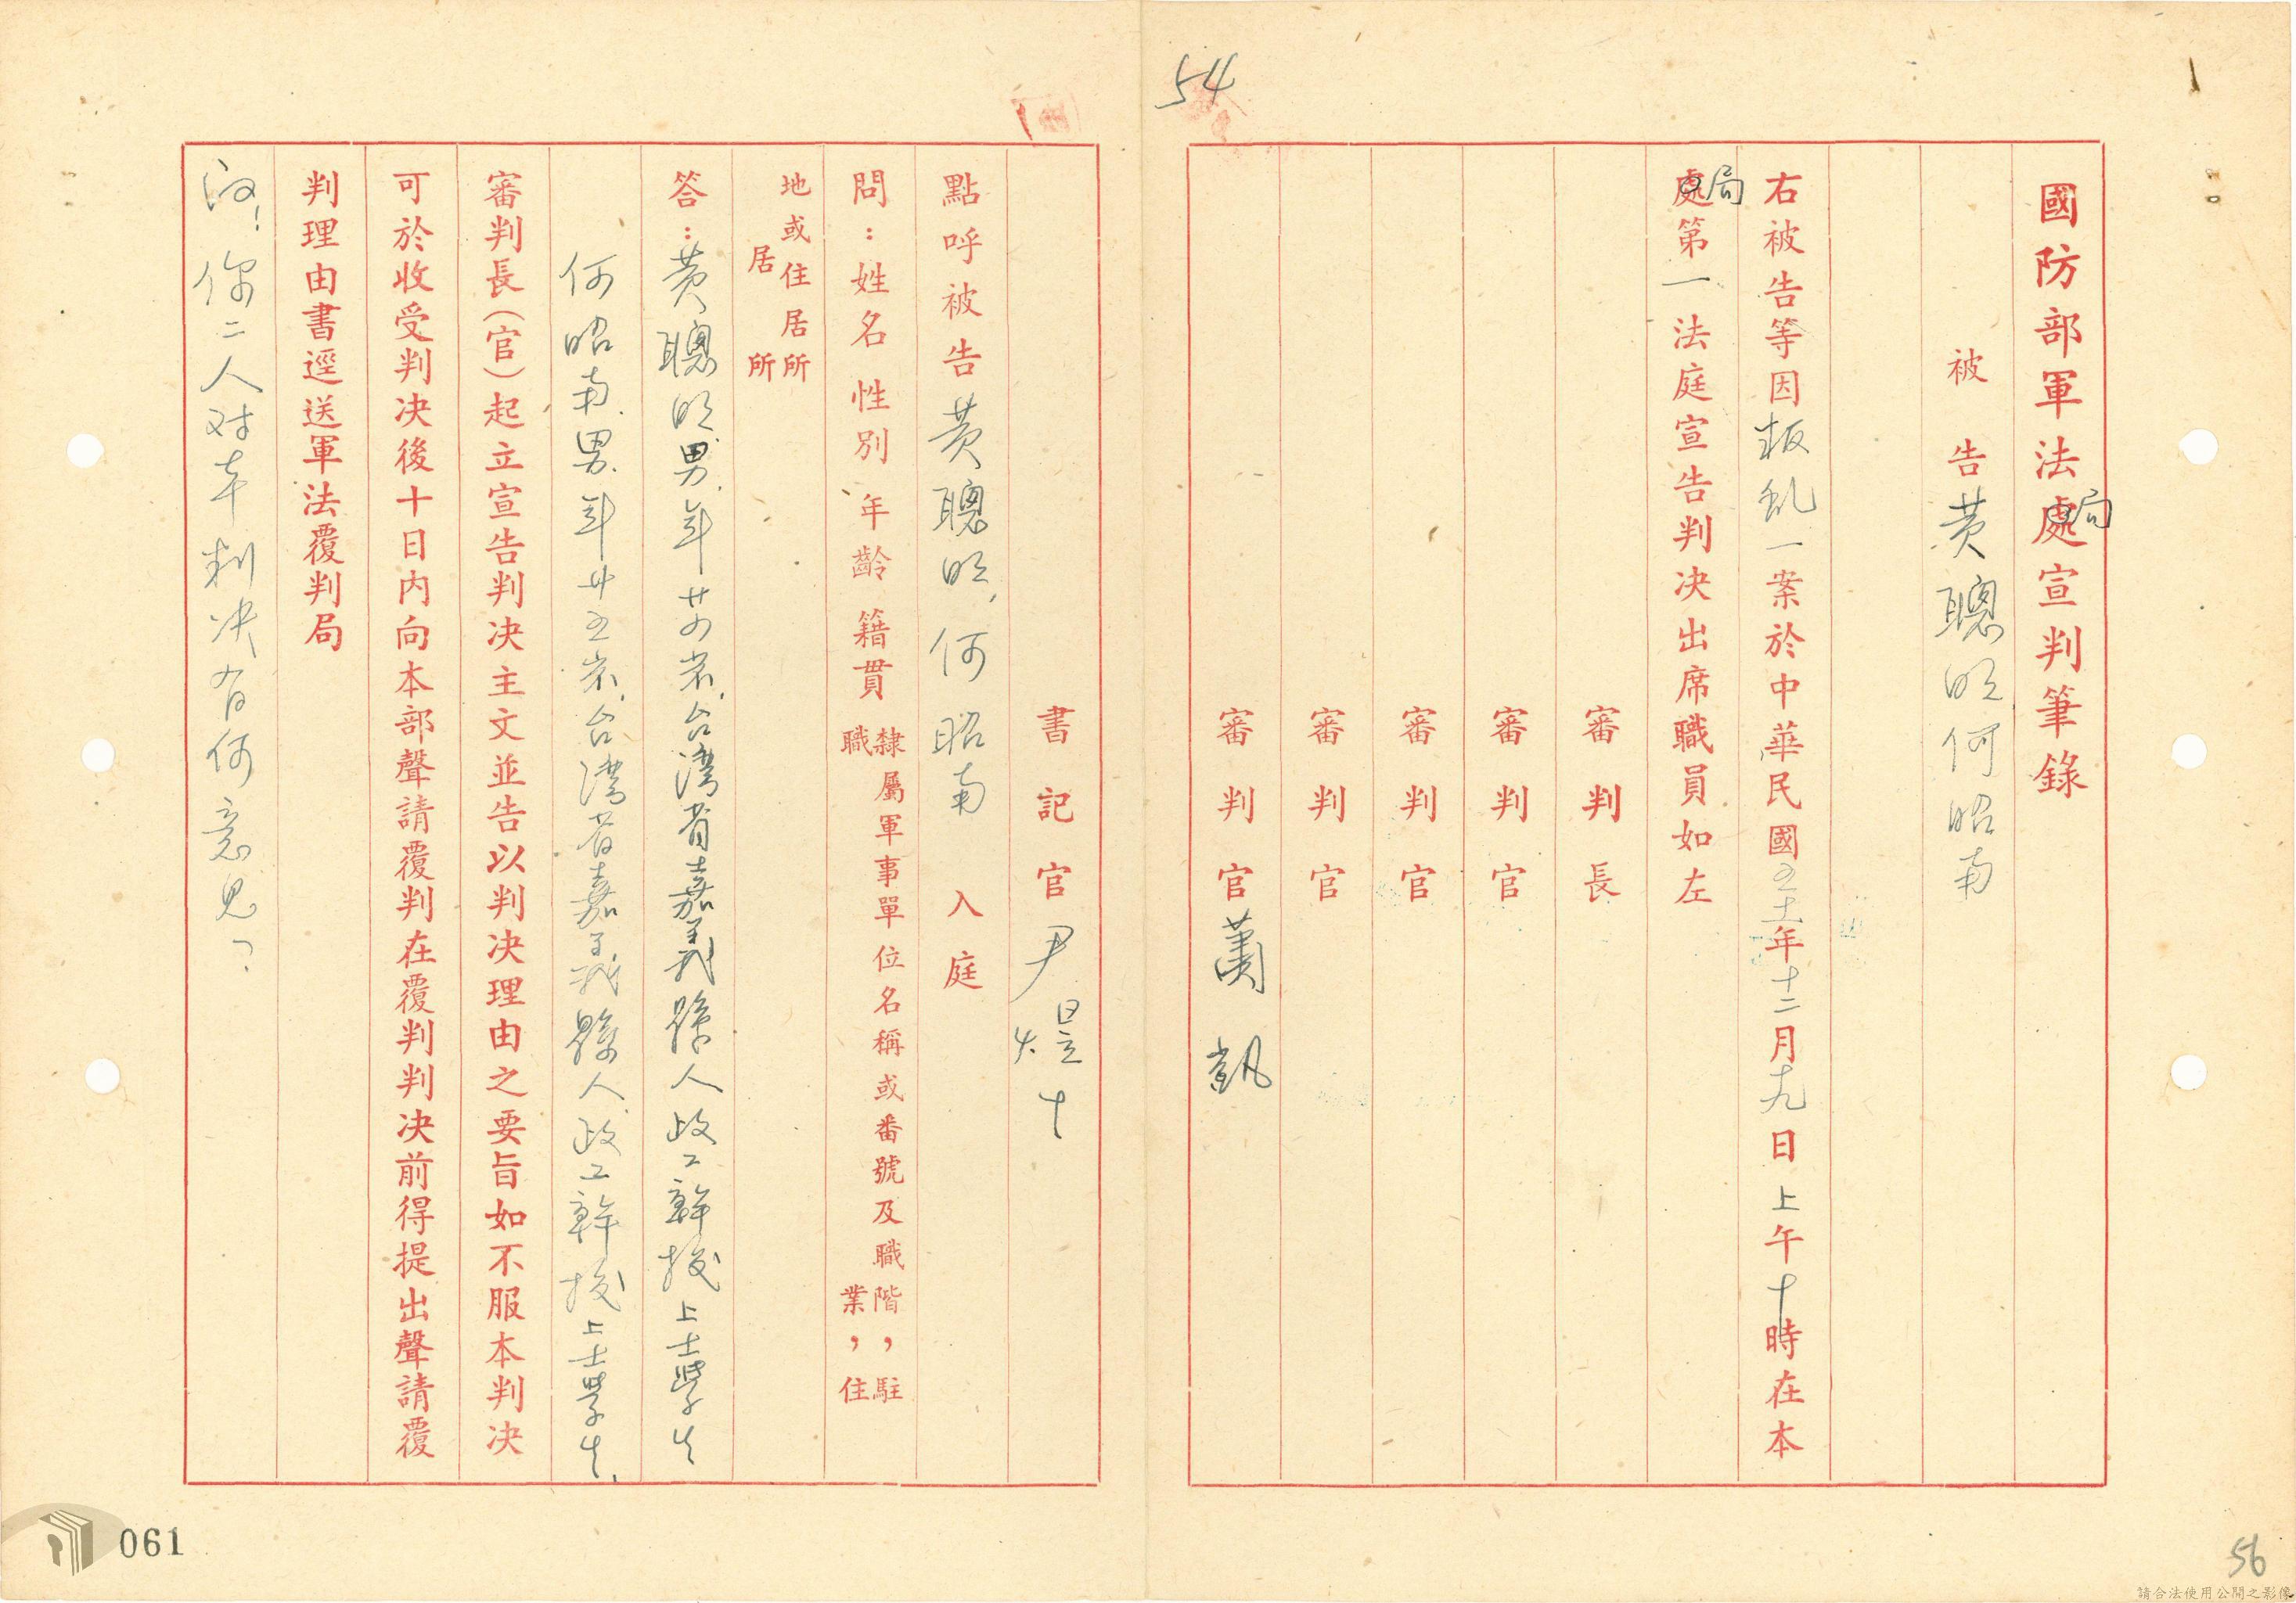 54
國防部軍法處局宣判筆錄
被告黃聰明何昭南
右被告等因叛亂一案於中華民國五十一年十二月十九日上午十時在本
處局第一法庭宣告判決出席職員如左
審判長
審判官
審判官
審判官
審判官蕭凱
書記官尹煜十
點呼被告黃聰明,何昭南入庭
問:姓名 性別 年齡 籍貫 隸屬軍事單位名稱或番號及職階,駐
職業,住
地或住居所
居所
答:黃聰明,男,年廿四歲,台灣省嘉義縣人,政工幹校上士學生
何昭南,男,年廿五歲,台灣省嘉義縣人,政工幹校上士學生.
審判長(官)起立宣告判決主文並告以判決理由之要旨如不服本判決
可於收受判決後十日內向本部聲請覆判在覆判判決前得提出聲請覆
判理由書逕送軍法覆判局
問:你二人对本判決有何意見?
061
56
請合法使用公開之影像